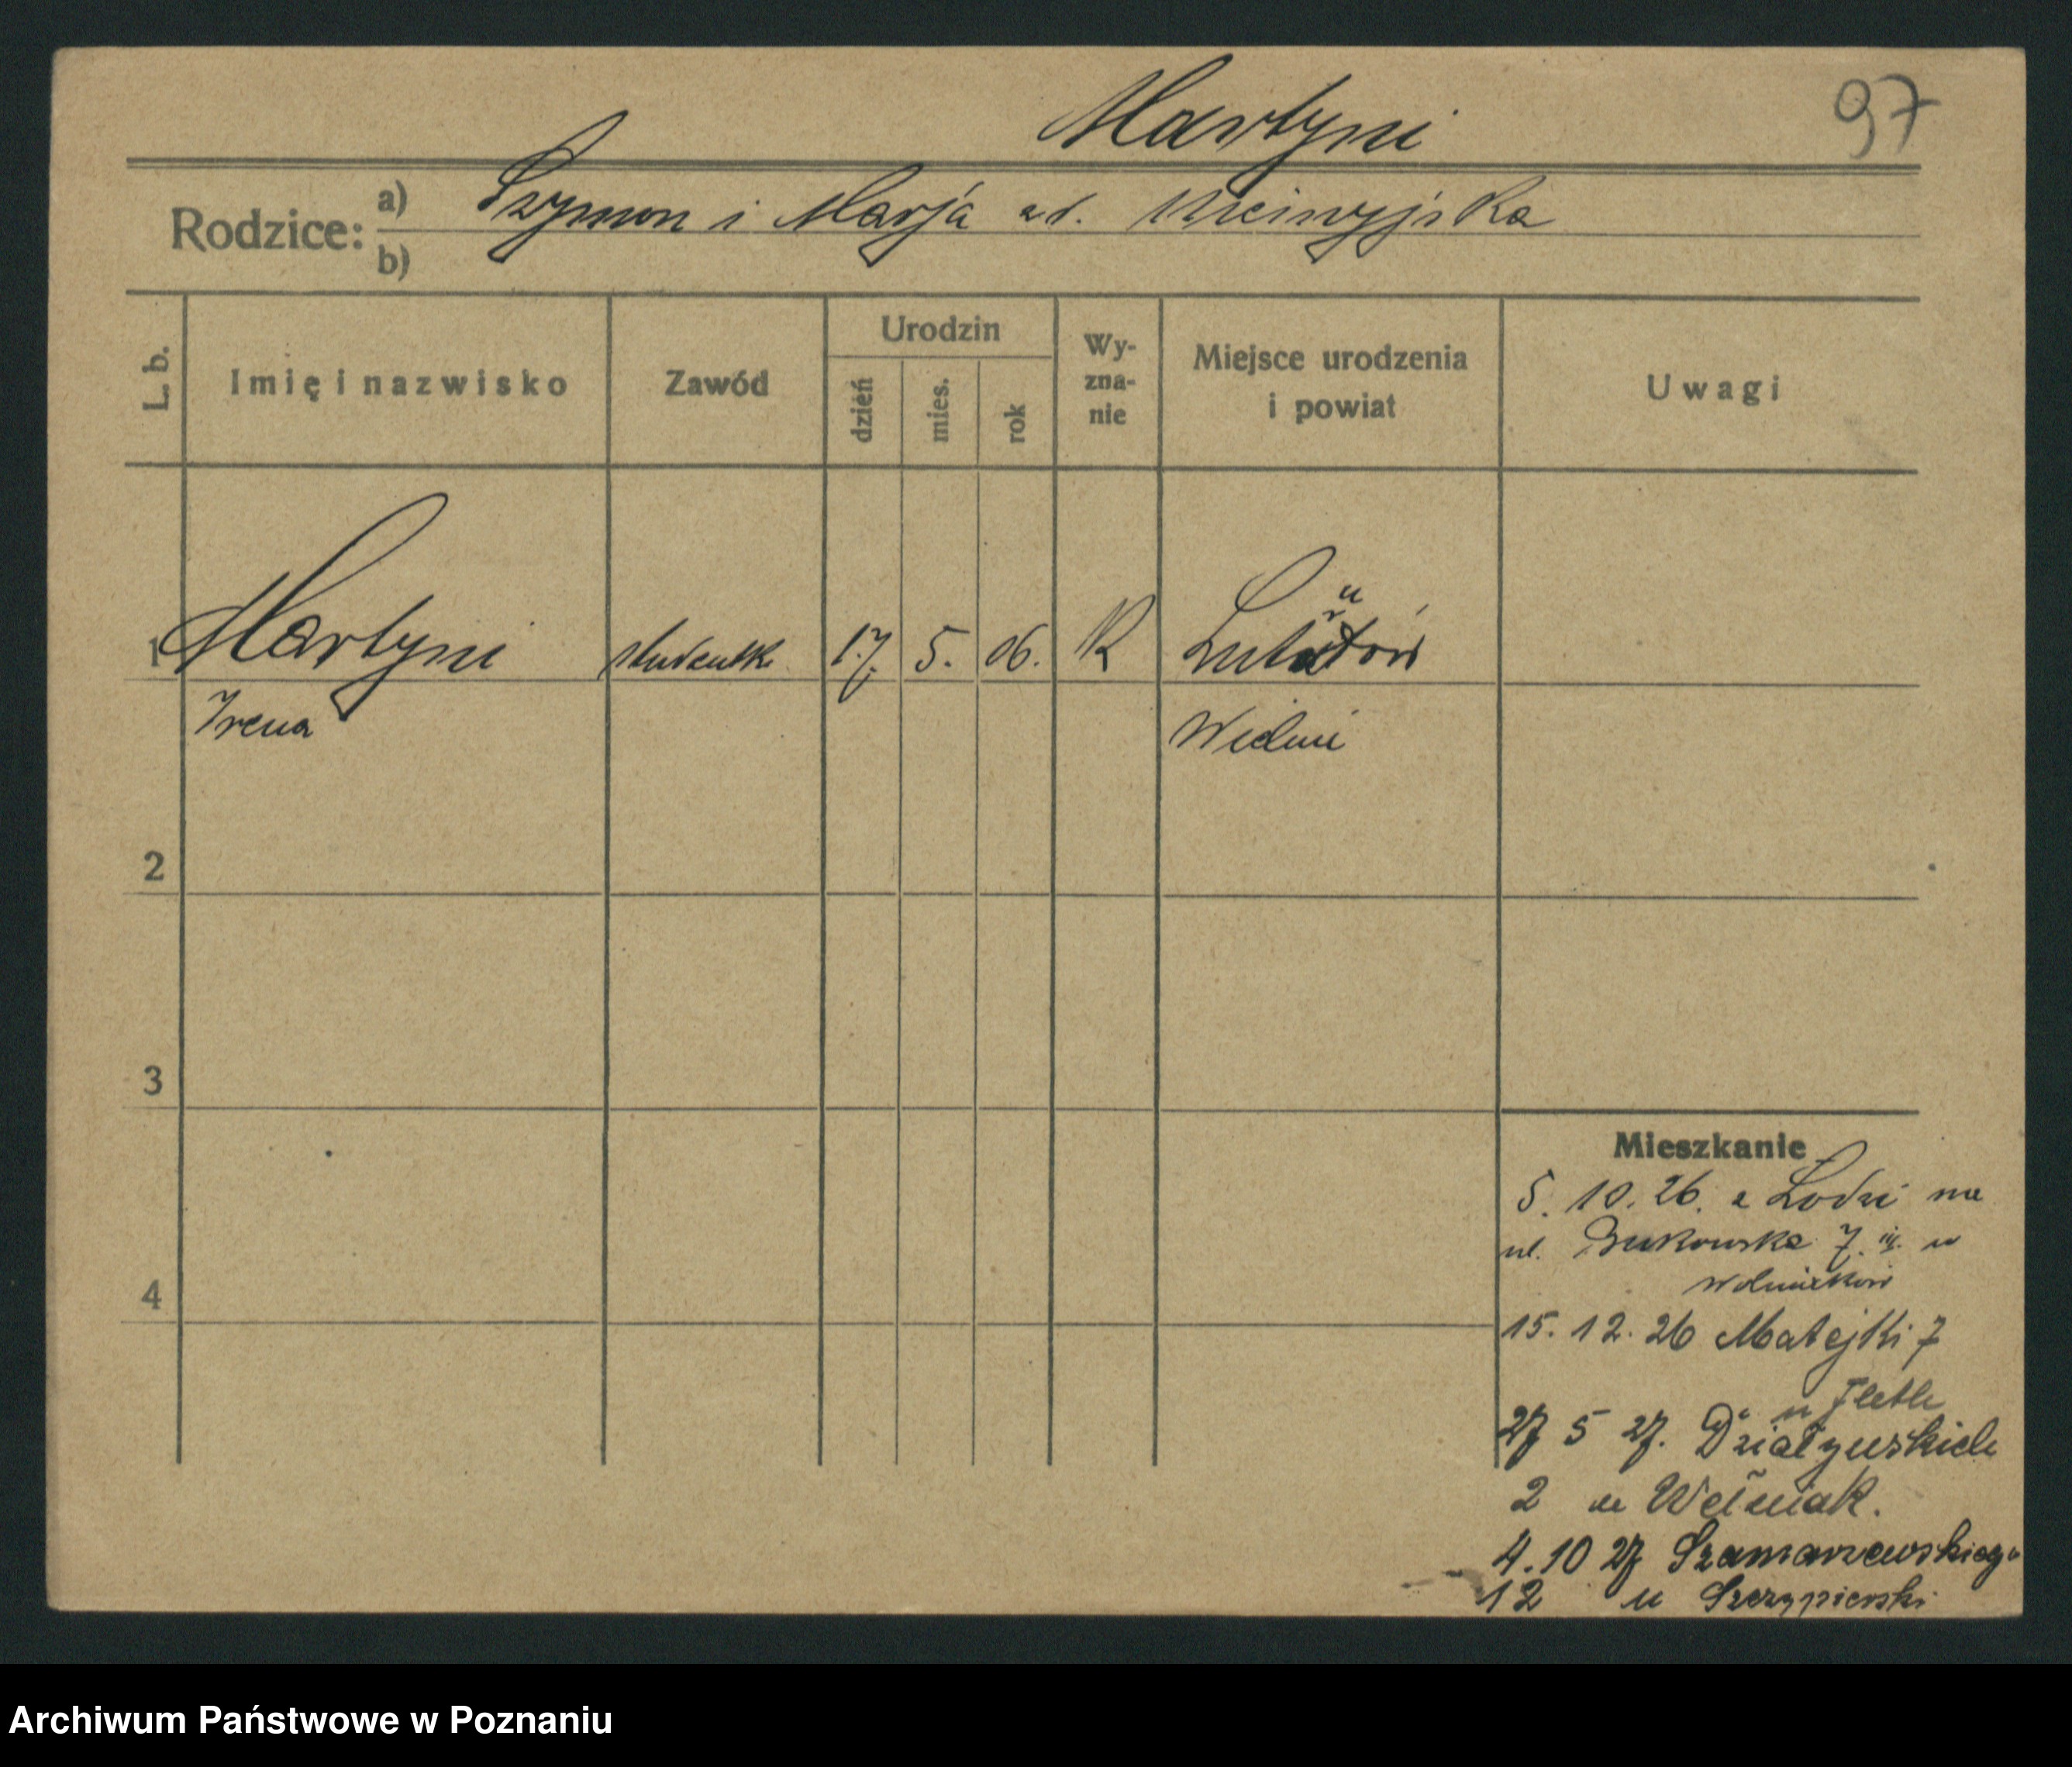 Martyni 97
Rodzice: a) Szymon i Marja
b)
L. b. Imię i nazwisko Zawód Urodzin dzień mies. rok Wy-zna-nie Miejsce urodzenia i powiat Uwagi
1 Martyni studentka 17. 5. 06. R
Irena Wieluń
2
3
4
Mieszkanie
5. 10. 26. z Łodzi na
ul. Bukowska 7. III. u
15. 12. 26 Matejki 7
u
27 5 27. Działyńskich
2 u Weśniak.
4. 10 27 Szamarzewskiego
12 u Szczypierski
Archiwum Państwowe w Poznaniu